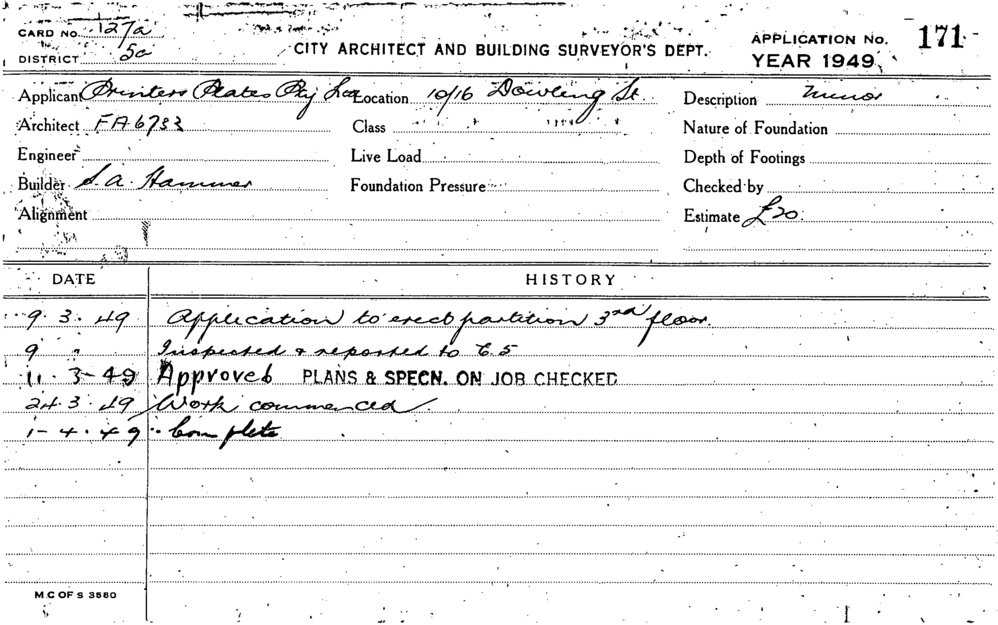 CARD No. 127a
DISTRICT 5a
CITY ARCHITECT AND BUILDING SURVEYOR'S DEPT.
APPLICATION No. 171
YEAR 1949
Applicant Printers Plates Pty Ltd Location 10/16 Dowling St. Description Minor
Architect FA6733 Class Nature of Foundation
Engineer Live Load Depth of Footings
Builder S. A. Hammer Foundation Pressure Checked by
Alignment Estimate £20.
DATE HISTORY
9. 3. 49 Application to erect partition 3rd floor.
9 " Inspected & reported to C.S
11. 3-49 Approved PLANS & SPECN. ON JOB CHECKED
24. 3. 49 Work commenced.
1-4.49 Complete
M.C OF S 3580